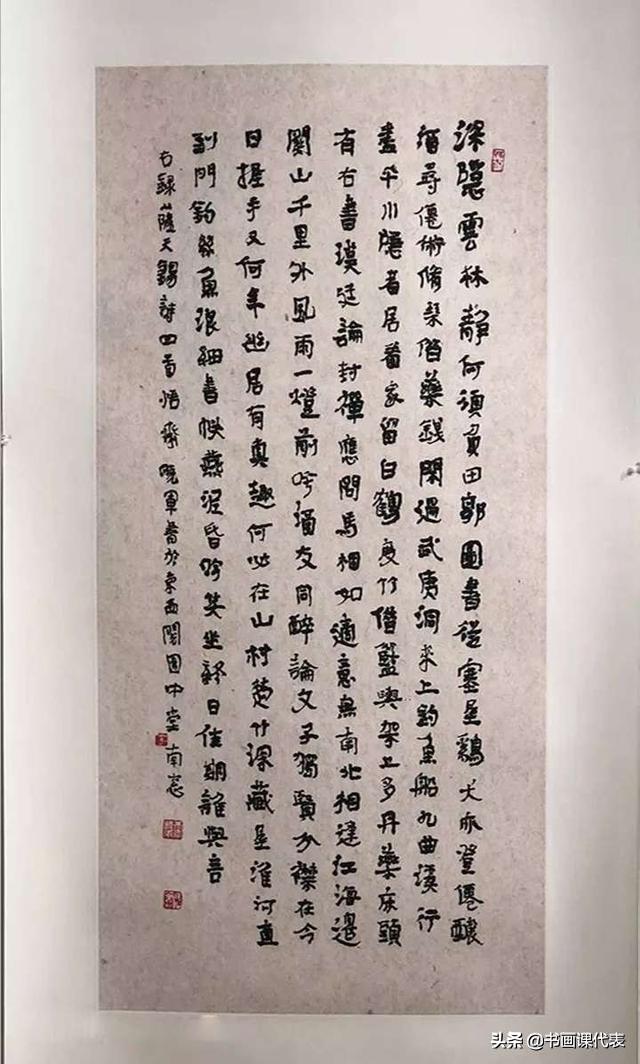 深隐雲林靜何須負田郭圖書從塞屋鷄犬亦登僊釀
酒尋僊術脩琴借藥錢閑過武夷洞來上釣魚船九曲溪行
盡平川隱者居着家留白鶴度竹借籃輿架上多丹藥床頭
有右書莫廷論封禪應問馬相如適意無南北相逢江海邊
關山千里外風雨一燈前吟酒友同醉論文子獨賢分襟在今
日握手又何年幽居有真趣何必在山村楚竹深藏屋淮河直
到門釣絲魚浪細書帙燕泥昏吟笑坐終日佳期誰與言
右録薩天錫詩四首悟齋曉軍書於東西關園中堂南窓
头条 @书画课代表